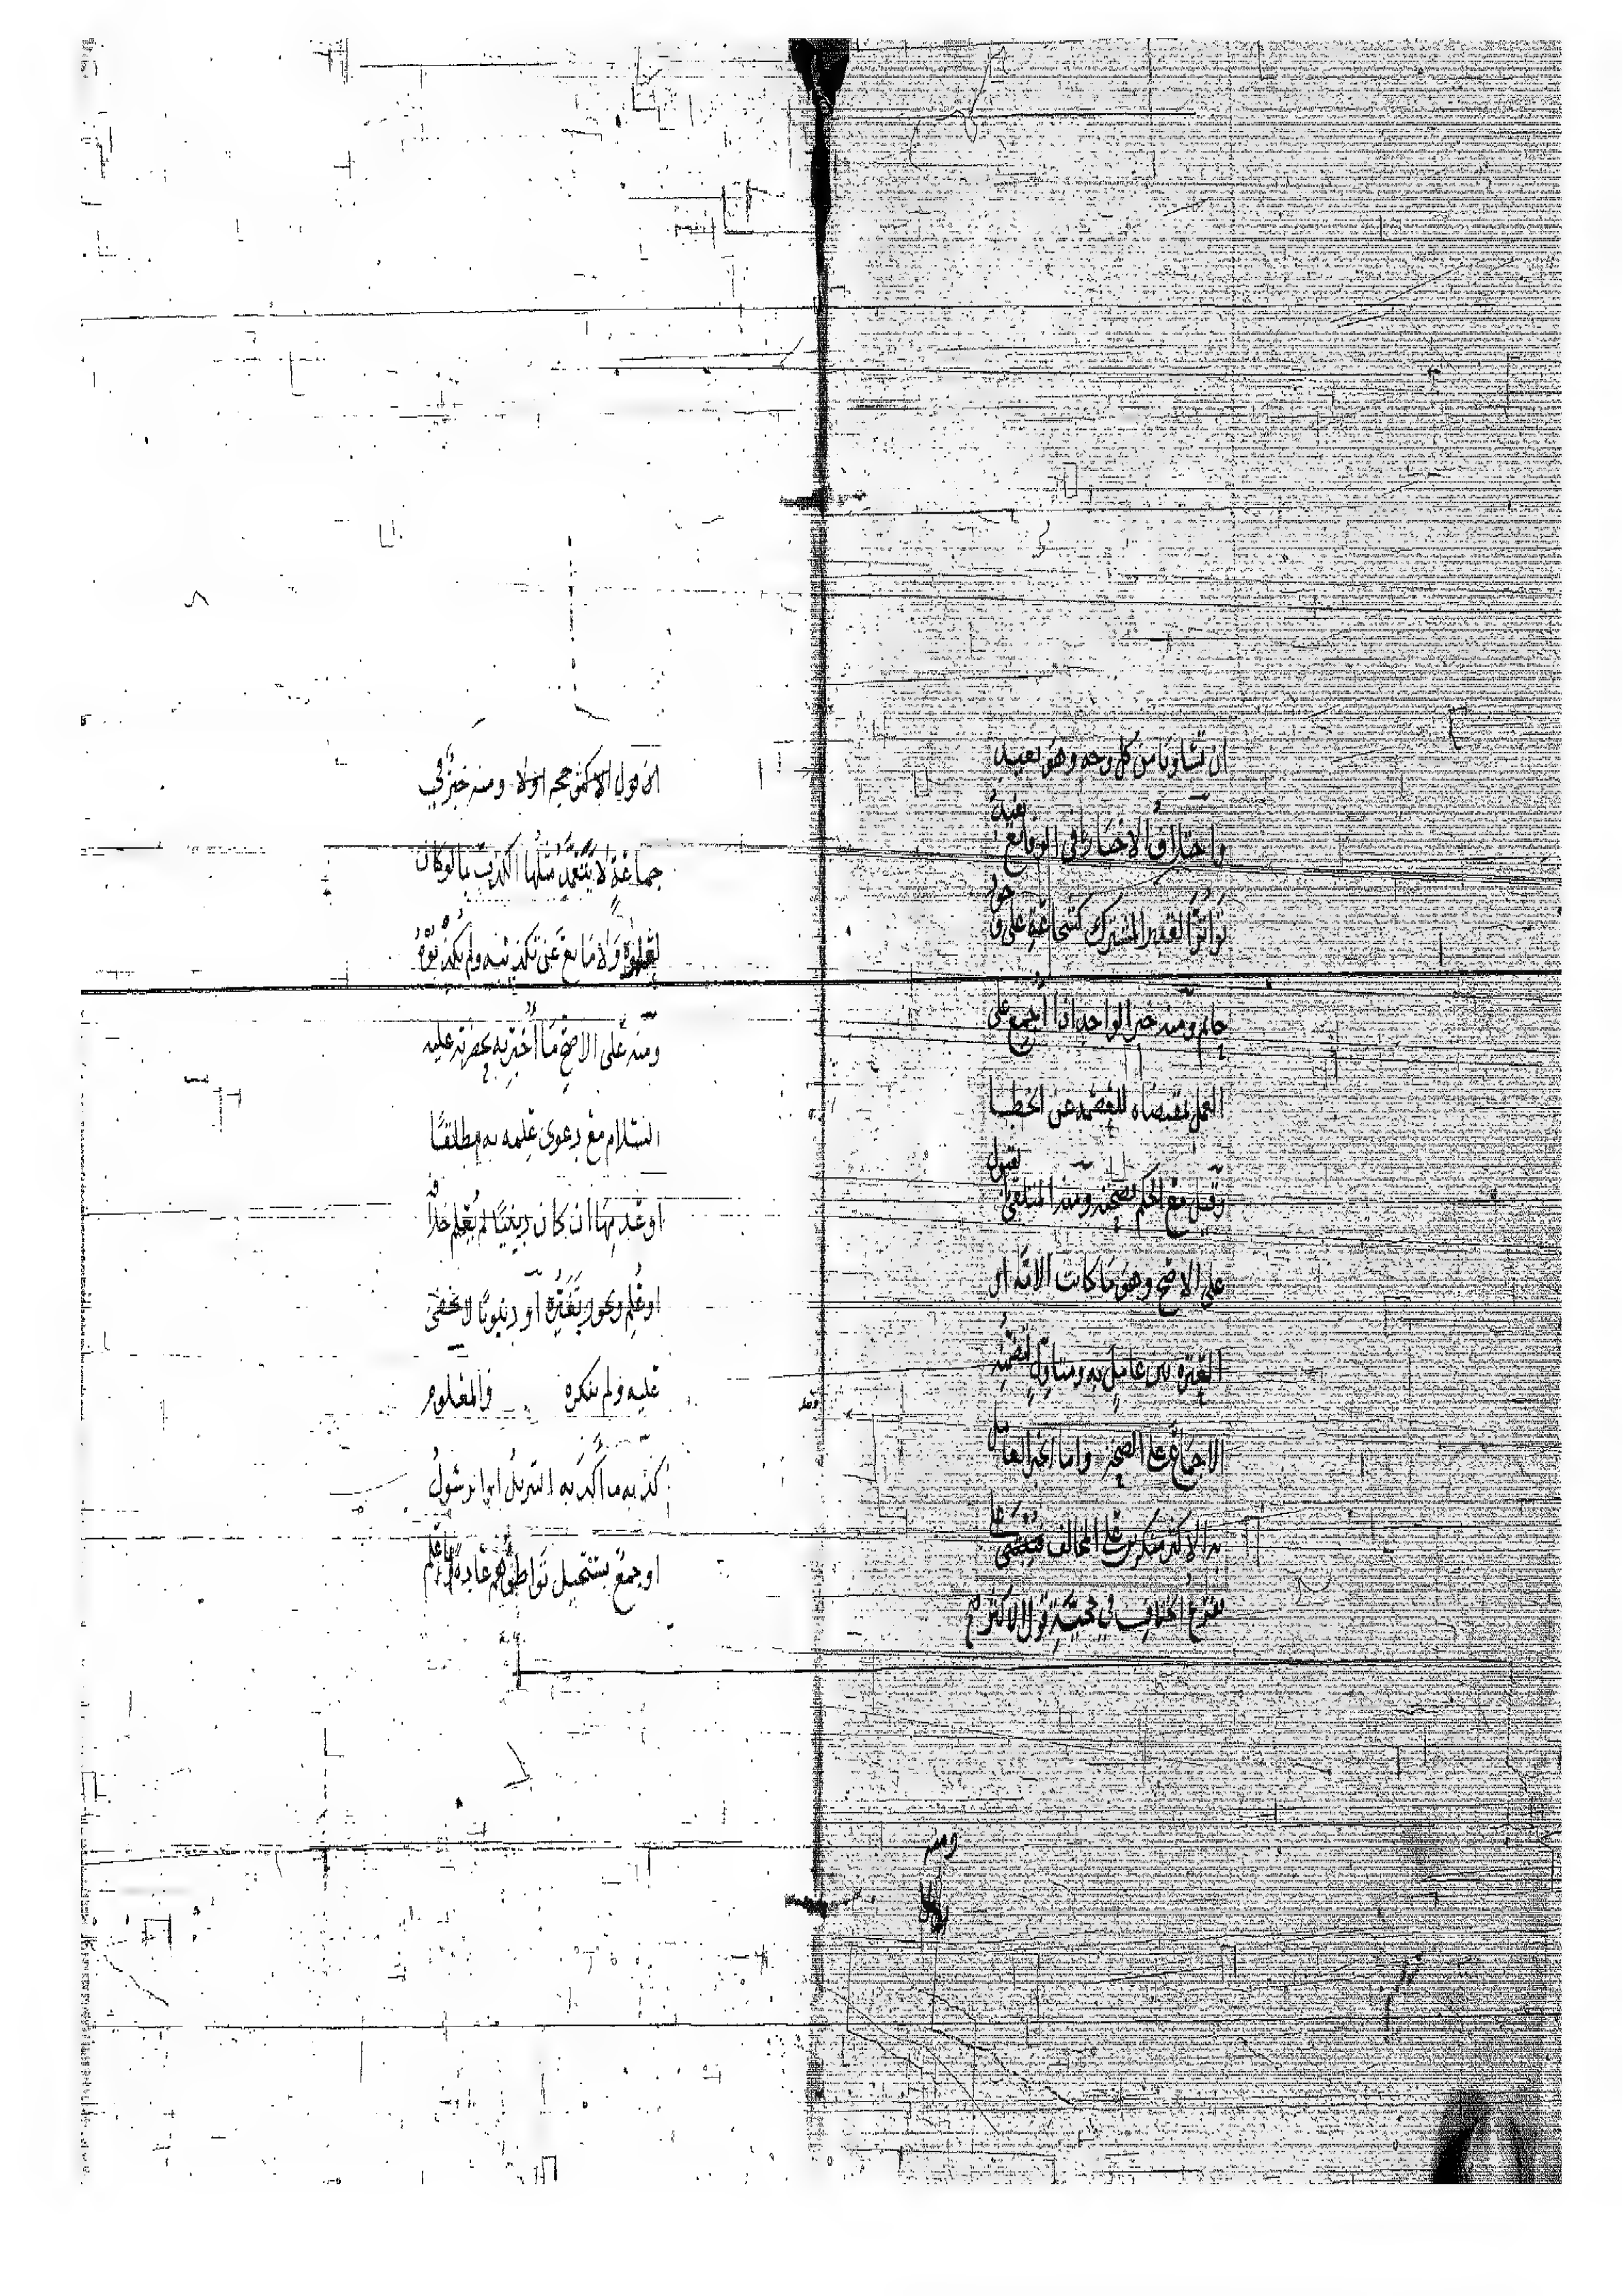 ان تساويا من كل وجه وهو بعيد
واختلاف الاخبار في الوقايع يفيد
تواتر القدر المشترك كشجاعة علي وجود
حاتم ومنه خبر الواحد اذا اجمع على
العمل بمقتضاه للعصمة عن الخطا
وقيل مع الحكم بصحته ومنه المتلقى بالقبول
على الاصح وهو ما كانت الامة او
العترة بين عامل به ومتاول لتضمنه
الاجماع على الصحة واما الخبر العامل
به الاكثر منكرين على المخالف فيقضى على
تفرع الخلاف في حجية قول الاكثر
ومنه
ان قول الاكثر حجة اولا ومنه خبر في
جماعة لا يتعمد مثلها الكذب بما لو كان
لعلموه ولا مانع عن تكذيبه ولم يكذبوه
ومنه على الاصح ما اخبر به بحضرته عليه
السلام مع دعوى علمه به مطلقا
او عدمها ان كان دينيا لم يعلم خلافه
او علم ويجوز تغيره او دنيويا لا يخفى
عليه ولم ينكره والمعلوم
كذبه ما اكذبه التنزيل او الرسول
او جمع يستحيل تواطؤهم عادة او علم